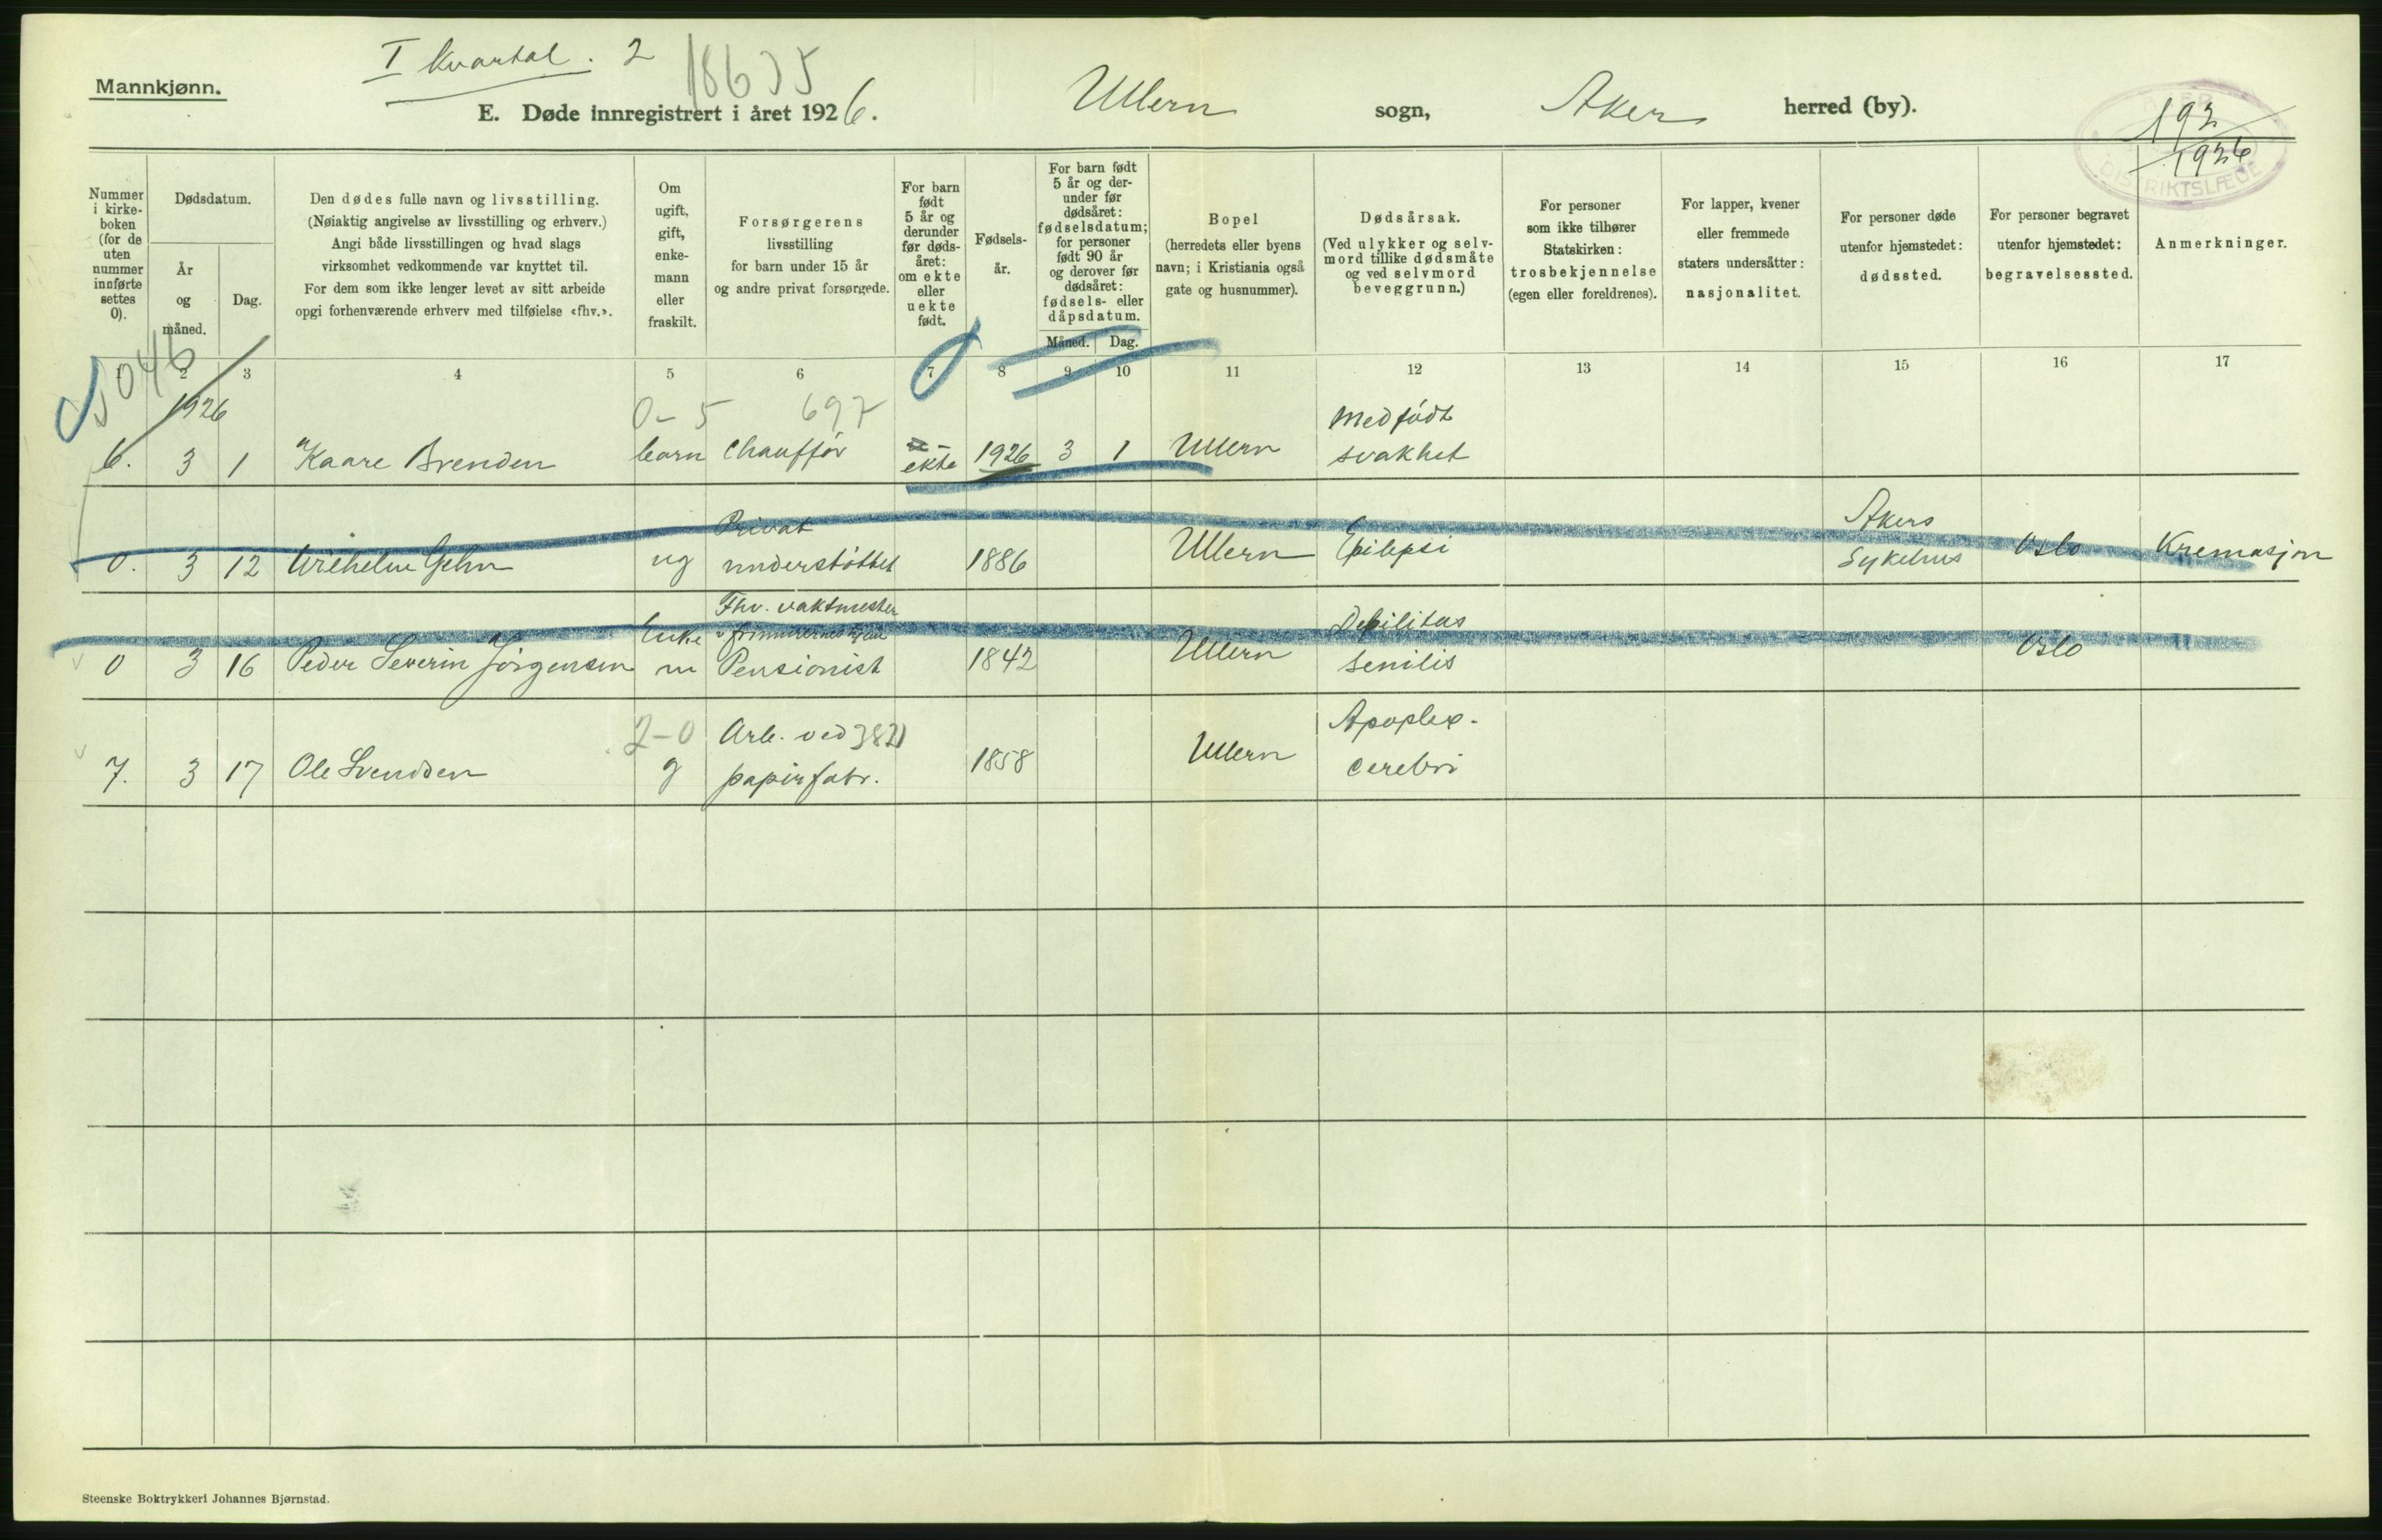 I Kvartal. 2
18635
Mannkjønn.
E. Døde innregistrert i året 1926.
Ullern sogn, Aker herred (by).
192
1926
DISTRIKTSLÆGE
Nummer i kirke-boken (for de uten nummer innførte settes 0).
Dødsdatum.
År og måned.
Dag.
Den dødes fulle navn og livsstilling.
(Nøiaktig angivelse av livsstilling og erhverv.)
Angi både livsstillingen og hvad slags
virksomhet vedkommende var knyttet til.
For dem som ikke lenger levet av sitt arbeide
opgi forhenværende erhverv med tilføielse «fhv.».
Om
ugift,
gift,
enke-
mann
eller
fraskilt.
Forsørgerens
livsstilling
for barn under 15 år
og andre privat forsørgede.
For barn
født
5 år og
derunder
før døds-
året:
om ekte
eller
uekte
født.
Fødsels-
år.
For barn født
5 år og der-
under før
dødsåret:
fødselsdatum;
for personer
født 90 år
og derover før
dødsåret:
fødsels- eller
dåpsdatum.
Måned. Dag.
Bopel
(herredets eller byens
navn; i Kristiania også
gate og husnummer).
Dødsårsak.
(Ved ulykker og selv-
mord tillike dødsmåte
og ved selvmord
beveggrunn.)
For personer
som ikke tilhører
Statskirken:
trosbekjennelse
(egen eller foreldrenes).
For lapper, kvener
eller fremmede
staters undersåtter:
nasjonalitet.
For personer døde
utenfor hjemstedet:
dødssted.
For personer begravet
utenfor hjemstedet:
begravelsessted.
Anmerkninger.
1 2 3 4 5 6 7 8 9 10 11 12 13 14 15 16 17
1926 0-5 697 Medfødt
6. 3 1 Kaare Brenden barn Chauffør ekte 1926 3 1 Ullern svakhet
Privat Akers
0. 3 12 Wilhelm Gehn ug understøttet 1886 Ullern Epilepsi Sykehus Oslo Kremasjon
Fhv. vaktmester
Enke Debilitas
0 3 16 Peder Severin Jørgensen m Pensionist 1842 Ullern senilis Oslo
2-0 Arb. ved 3821 Apoplex.
7. 3 17 Ole Svendsen g papirfabr. 1858 Ullern cerebri
Steenske Boktrykkeri Johannes Bjørnstad.